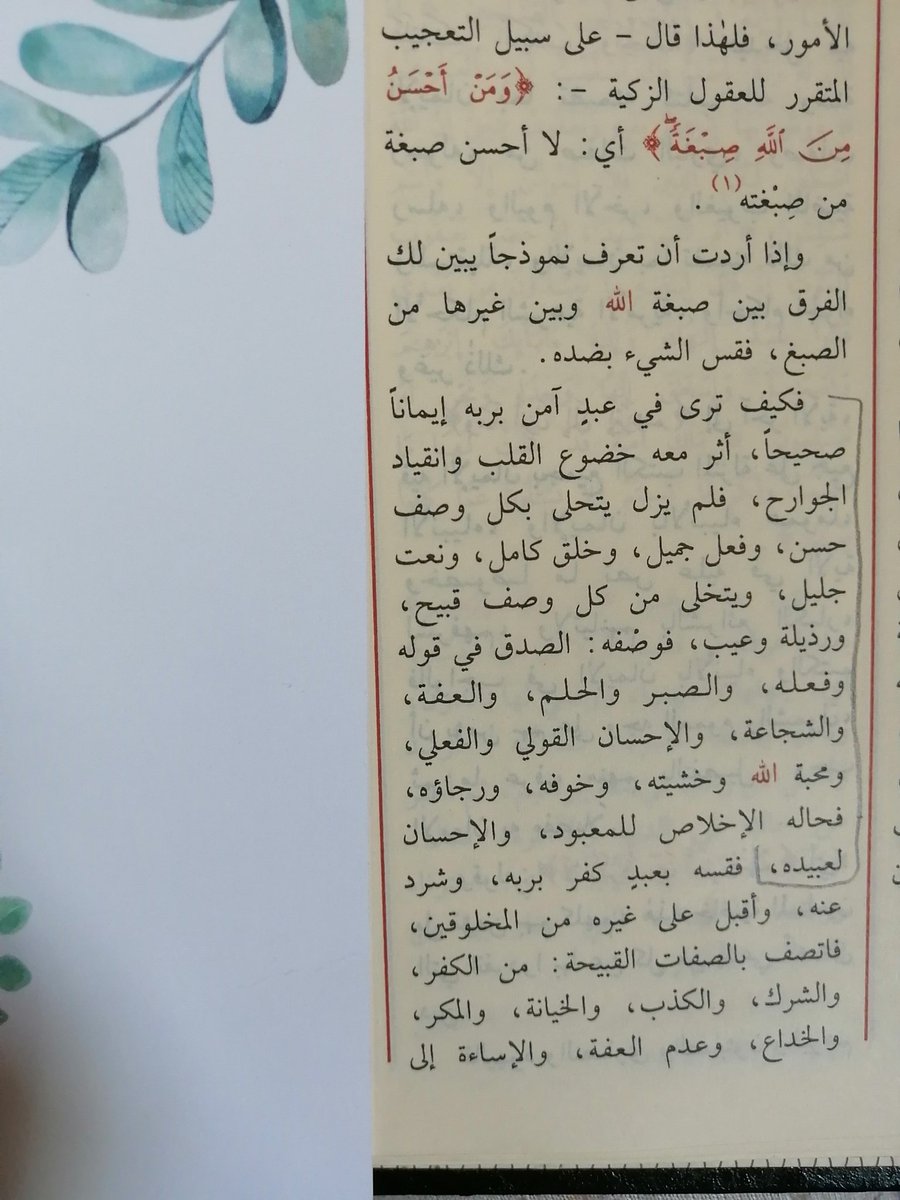 الأمور، فلهٰذا قال - على سبيل التعجيب
المتقرر للعقول الزكية -: ﴿وَمَنْ أَحْسَنُ
مِنَ ٱللَّهِ صِبْغَةً﴾ أي: لا أحسن صبغة
من صِبْغته(١).
وإذا أردت أن تعرف نموذجاً يبين لك
الفرق بين صبغة الله وبين غيرها من
الصبغ، فقس الشيء بضده.
فكيف ترى في عبدٍ آمن بربه إيماناً
صحيحاً، أثر معه خضوع القلب وانقياد
الجوارح، فلم يزل يتحلى بكل وصف
حسن، وفعل جميل، وخلق كامل، ونعت
جليل، ويتخلى من كل وصف قبيح،
ورذيلة وعيب، فوصْفه: الصدق في قوله
وفعله، والصبر والحلم، والعفة،
والشجاعة، والإحسان القولي والفعلي،
ومحبة الله وخشيته، وخوفه، ورجاؤه،
فحاله الإخلاص للمعبود، والإحسان
لعبيده، فقسه بعبدٍ كفر بربه، وشرد
عنه، وأقبل على غيره من المخلوقين،
فاتصف بالصفات القبيحة: من الكفر،
والشرك، والكذب، والخيانة، والمكر،
والخداع، وعدم العفة، والإساءة إلى